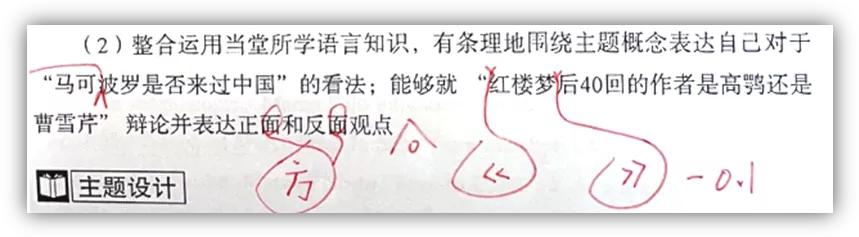 （2）整合运用当堂所学语言知识，有条理地围绕主题概念表达自己对于
“马可波罗是否来过中国”的看法；能够就 “红楼梦后40回的作者是高鹗还是
曹雪芹” 辩论并表达正面和反面观点
方 。 《 》 -0.1
主题设计